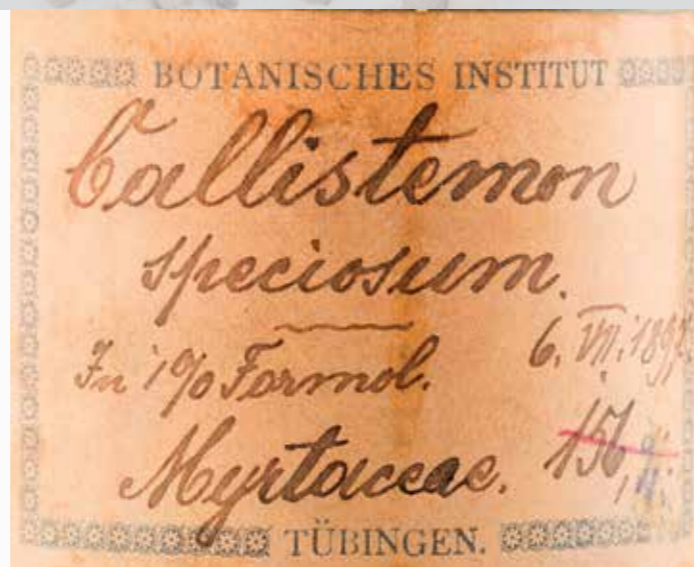 BOTANISCHES INSTITUT
Callistemon
speciosum.
In 1% Formol. 6. VII. 1897.
Myrtaceae. 156
TÜBINGEN.